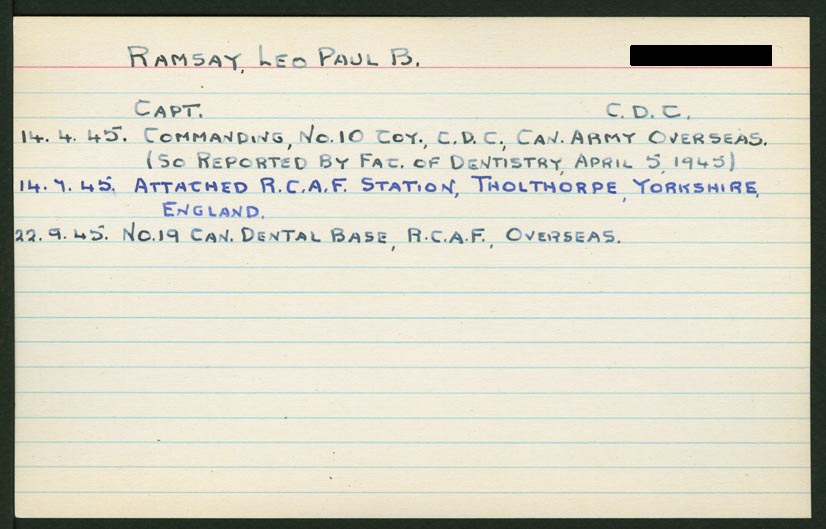 RAMSAY, LEO PAUL B.
CAPT. C.D.C.
14.4.45. COMMANDING, NO.10 COY., C.D.C., CAN. ARMY OVERSEAS.
(SO REPORTED BY FAC. OF DENTISTRY, APRIL 5, 1945)
14.7.45. ATTACHED R.C.A.F. STATION, THOLTHORPE, YORKSHIRE,
ENGLAND.
22.9.45. NO.19 CAN. DENTAL BASE, R.C.A.F., OVERSEAS.